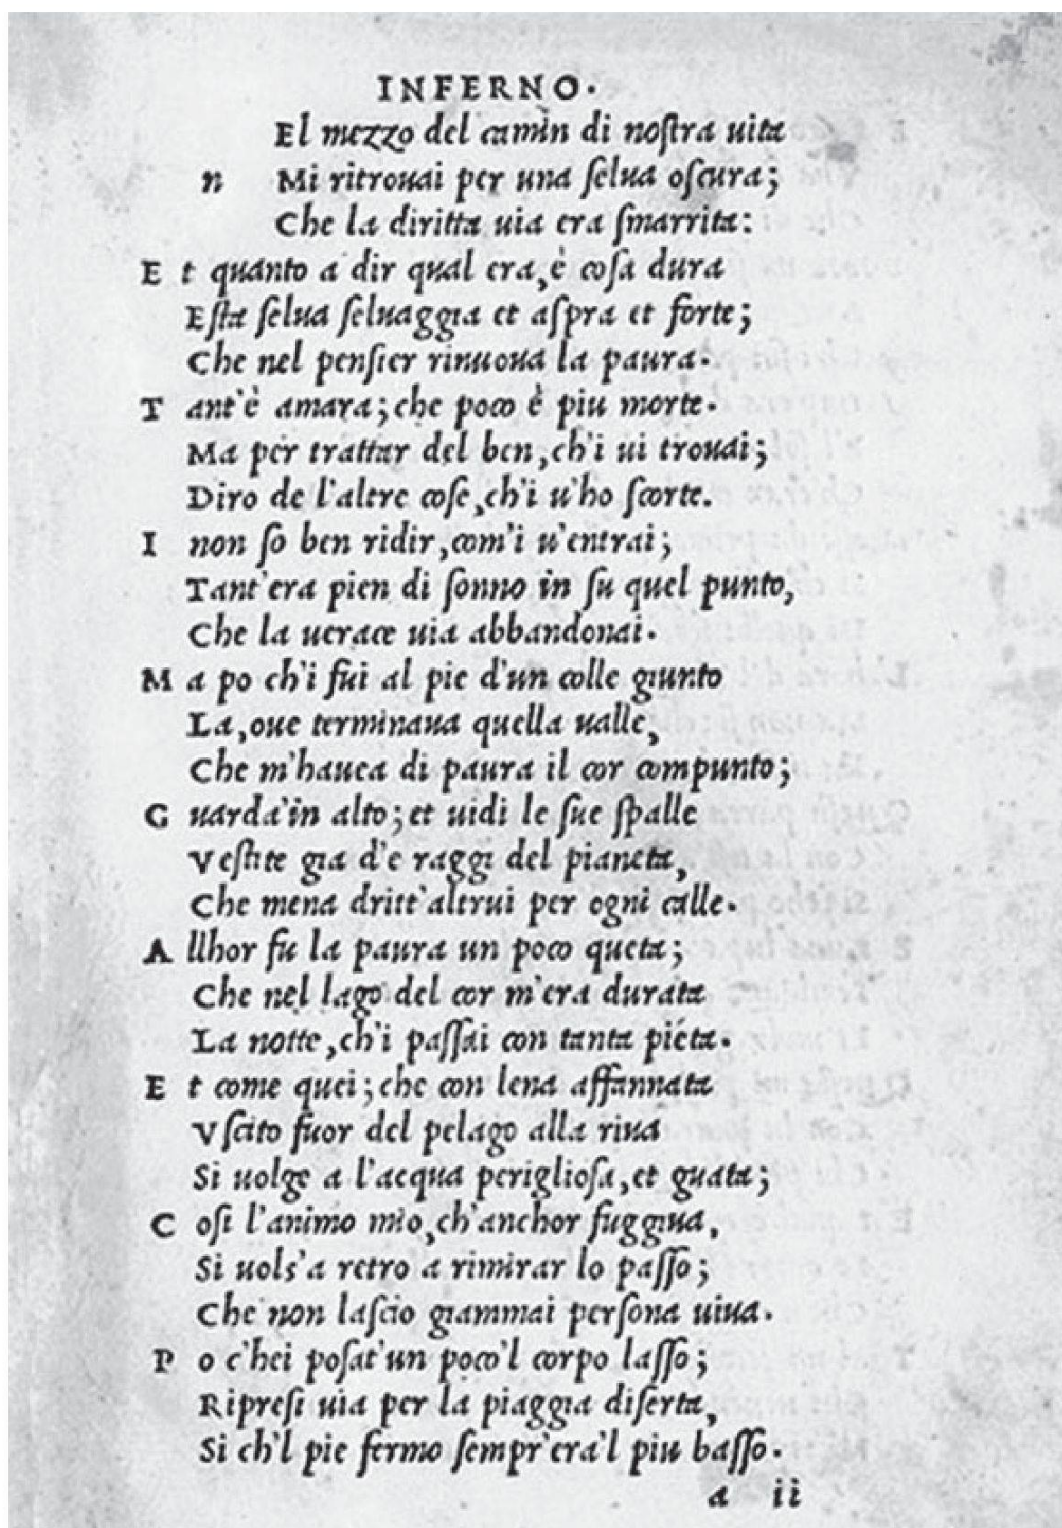 INFERNO.
El mezzo del camin di noſtra uita
n Mi ritrouai per una ſelua oſcura;
Che la diritta uia era ſmarrita:
E t quanto a dir qual era, è coſa dura
Eſta ſelua ſeluaggia et aſpra et forte;
Che nel penſier rinuoua la paura.
T ant'è amara; che poco è piu morte.
Ma per trattar del ben, ch'i ui trouai;
Diro de l'altre coſe, ch'i u'ho ſcorte.
I non ſo ben ridir, com'i u'entrai;
Tant'era pien di ſonno in ſu quel punto,
Che la uerace uia abbandonai.
M a po ch'i fui al pie d'un colle giunto
La, oue terminaua quella ualle,
Che m'hauea di paura il cor compunto;
G uarda'in alto; et uidi le ſue ſpalle
Veſtite gia d'e raggi del pianeta,
Che mena dritt'altrui per ogni calle.
A llhor fu la paura un poco queta;
Che nel lago del cor m'era durata
La notte, ch'i paſſai con tanta piéta.
E t come quei; che con lena affannata
Vſcito fuor del pelago alla riua
Si uolge a l'acqua periglioſa, et guata;
C oſi l'animo mio, ch'anchor fuggiua,
Si uols'a retro a rimirar lo paſſo;
Che non laſcio giammai perſona uiua.
P o c'hei poſat'un poco'l corpo laſſo;
Ripreſi uia per la piaggia diſerta,
Si ch'l pie fermo ſempr'era'l piu baſſo.
a ii